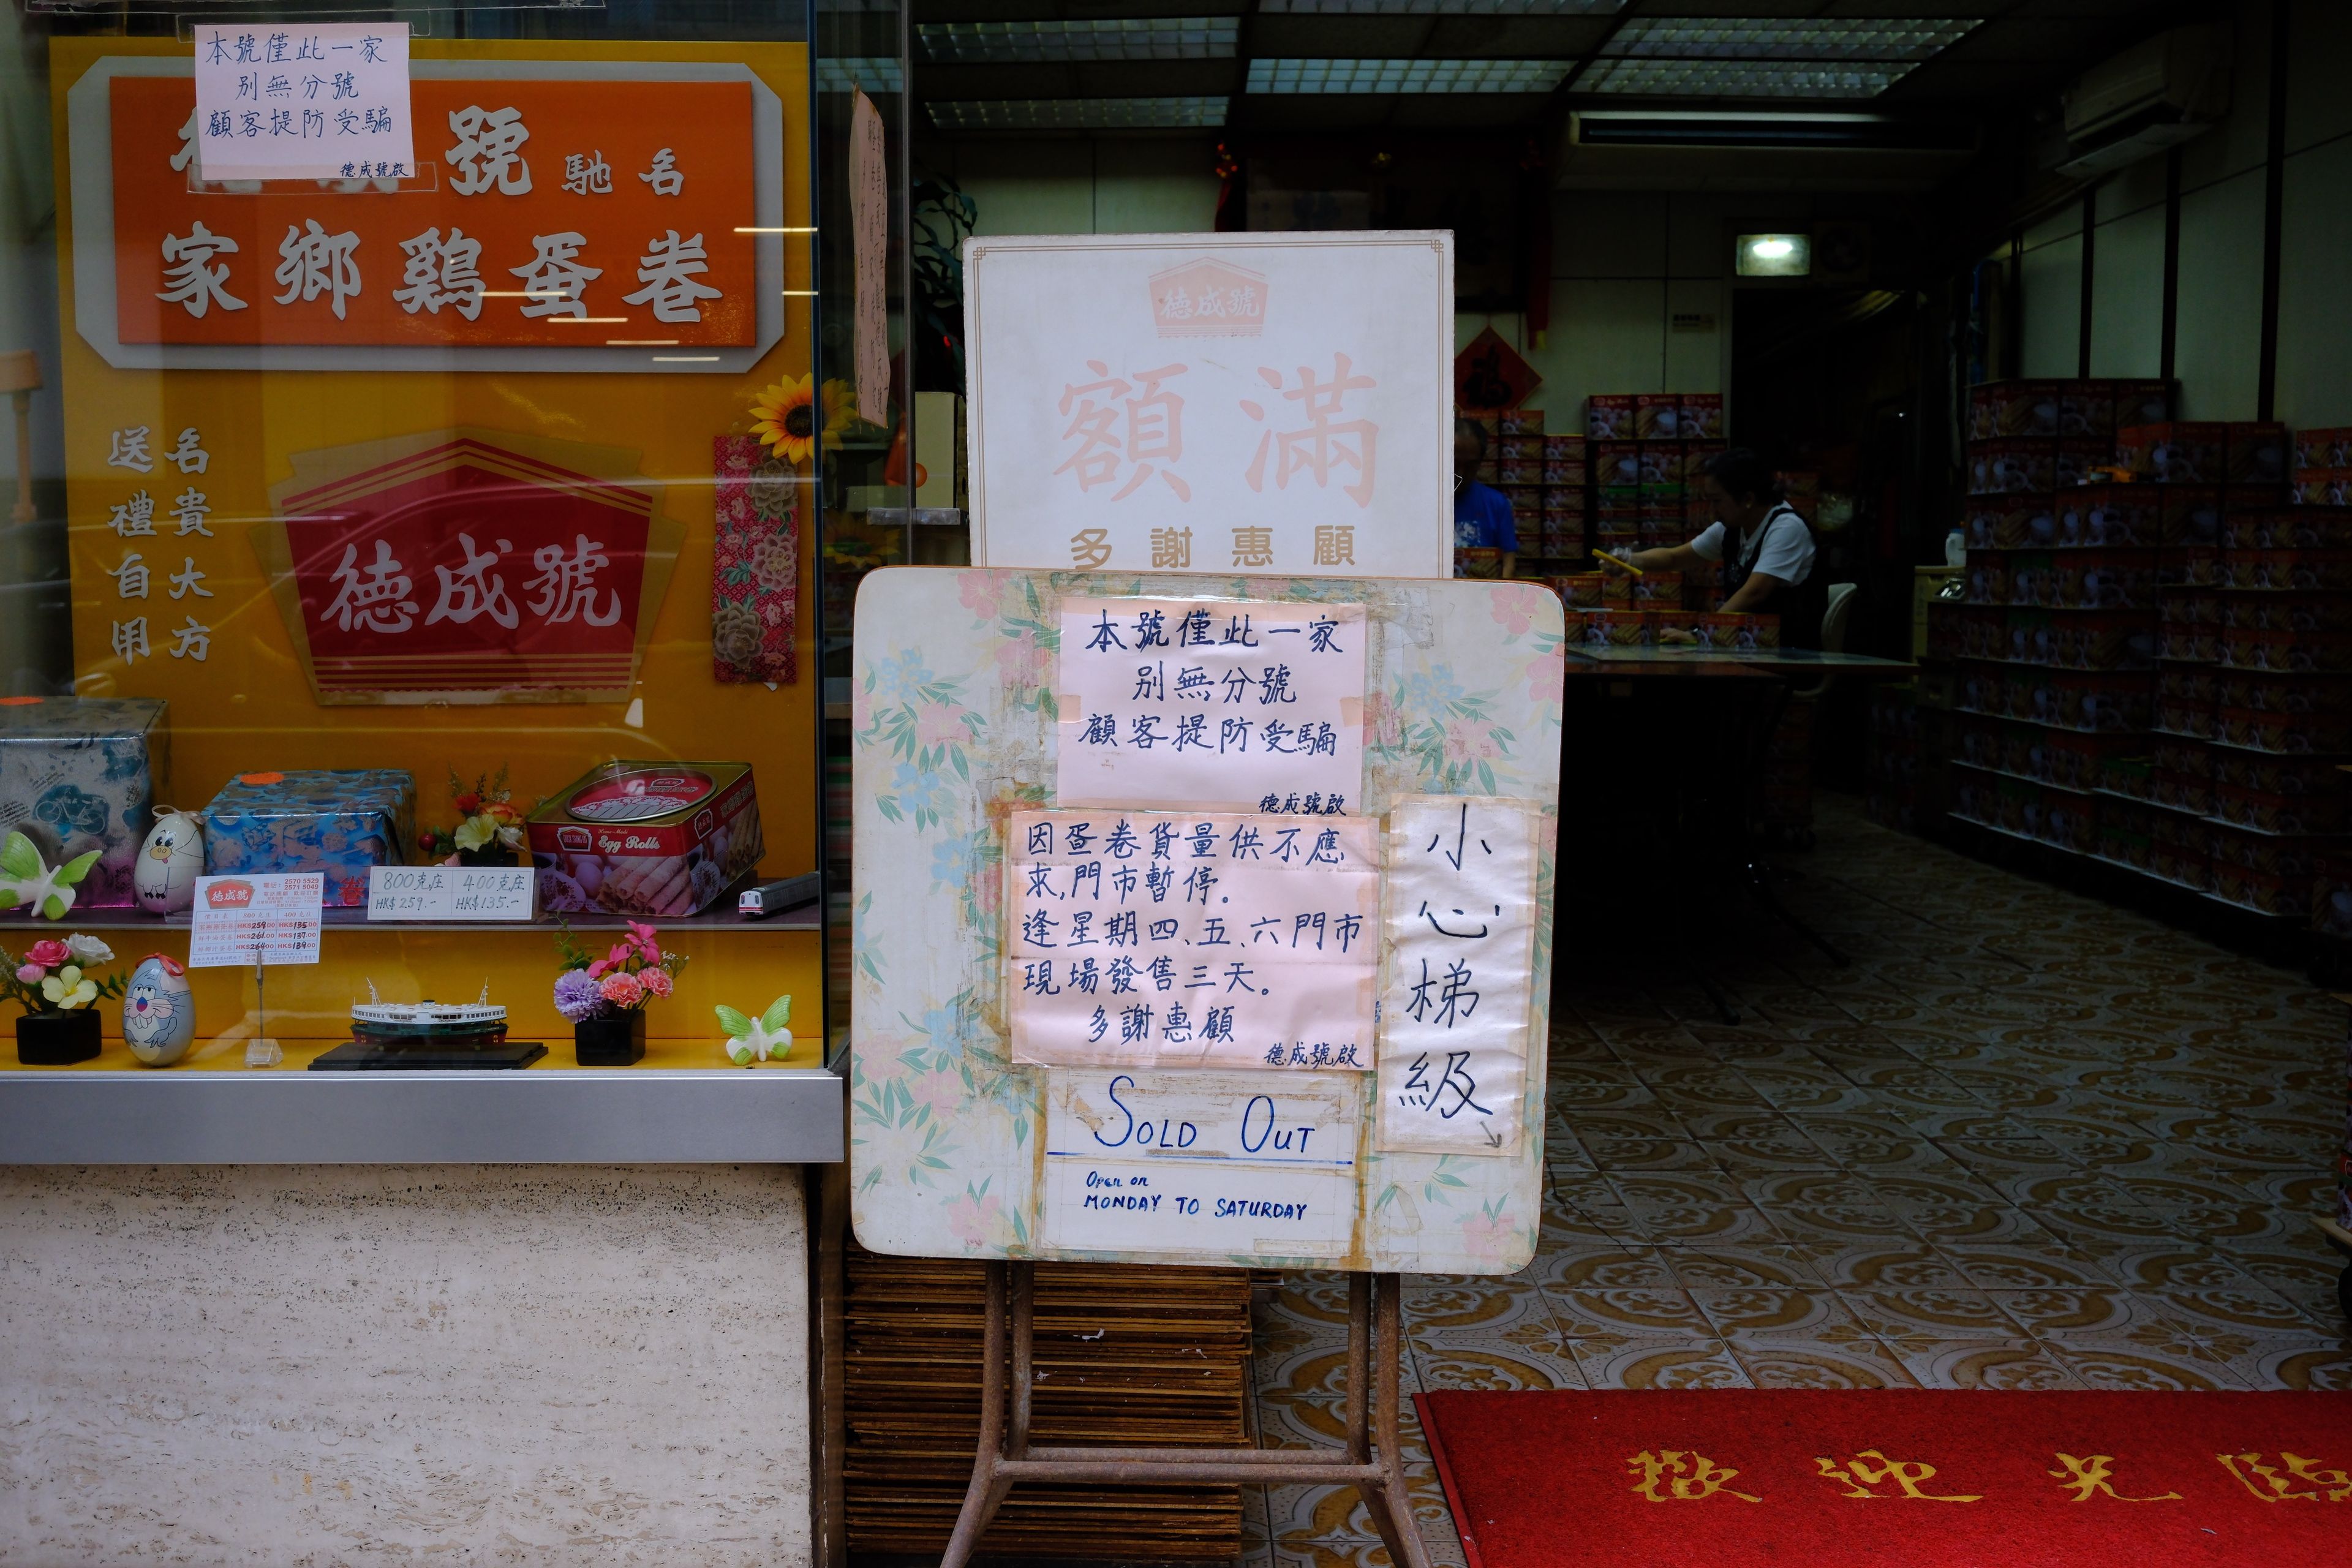 本號僅此一家
別無分號
顧客提防受騙
德成號啟
號 馳名
家鄉鷄蛋卷
名貴大方
送禮自用
德成號
Egg Rolls
800克庄 400克庄
HK$259.- HK$135.-
德成號
2570 5529
2571 5049
德成號
額滿
多謝惠顧
本號僅此一家
別無分號
顧客提防受騙
德成號啟
因蛋卷貨量供不應
求,門市暫停。
逢星期四、五、六門市
現場發售三天。
多謝惠顧
德成號啟
小心梯級
SOLD OUT
Open on
MONDAY TO SATURDAY
福
歡迎光臨